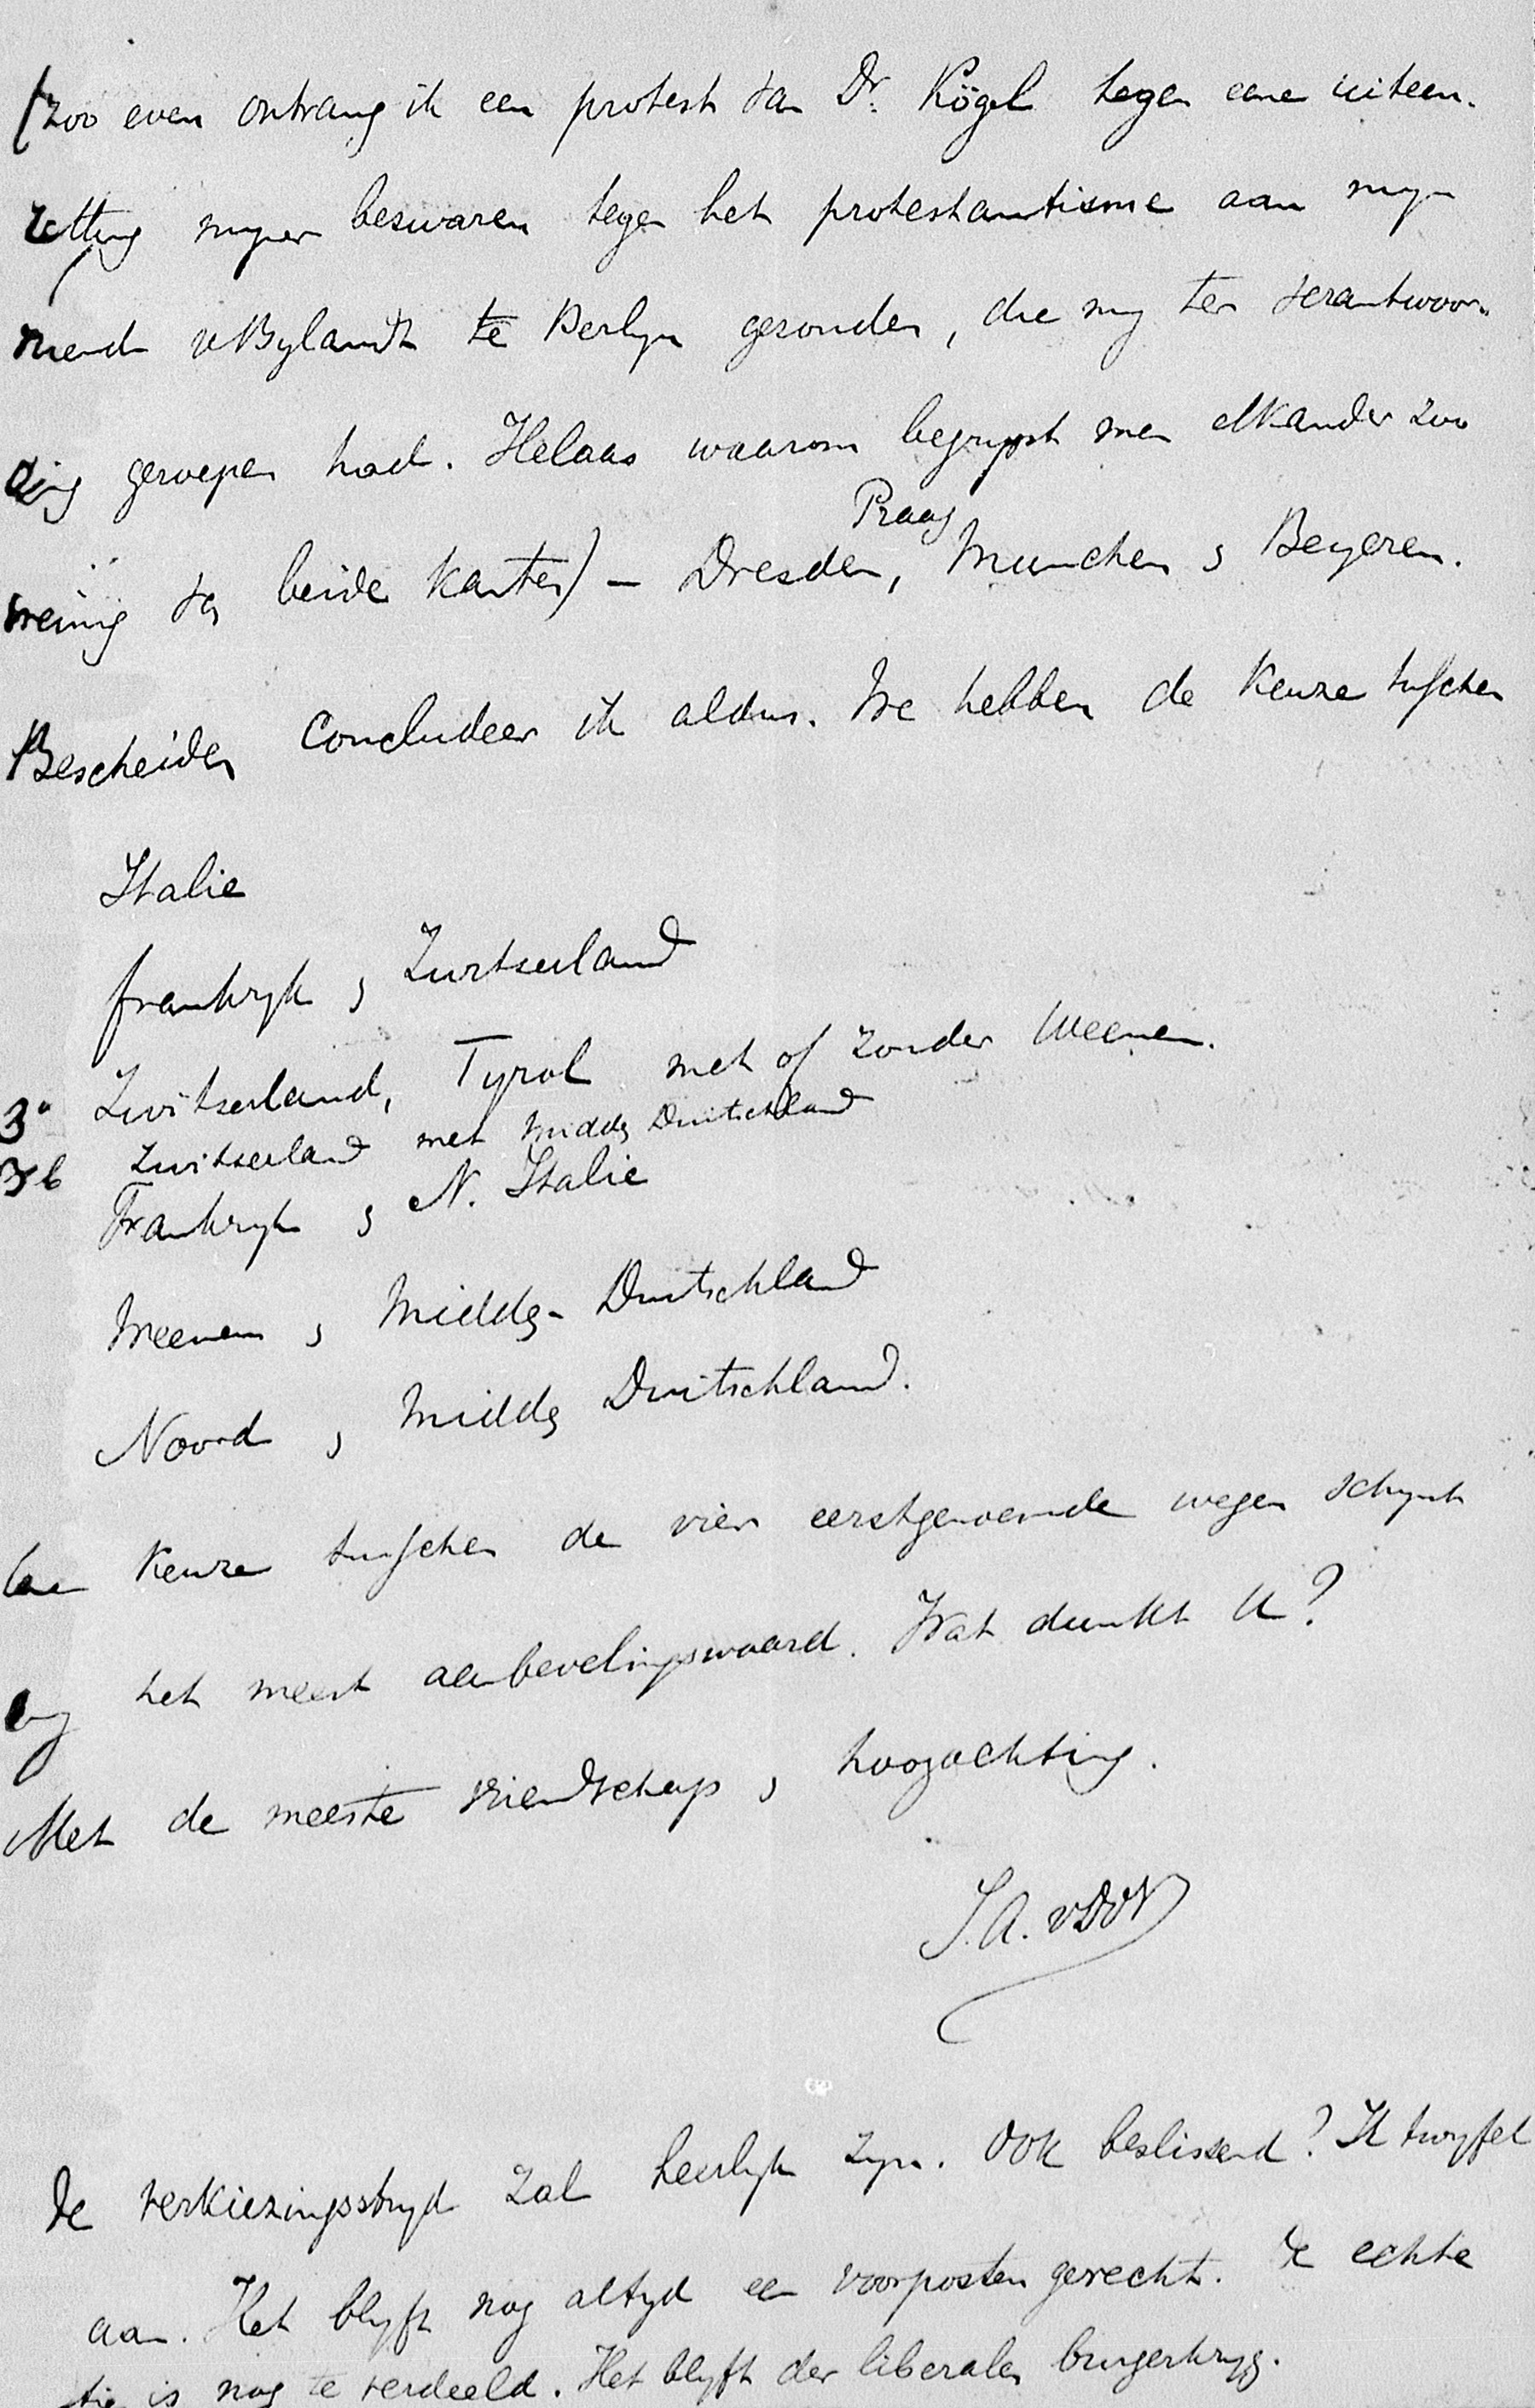 (zoo even ontvang ik een protest van Dr. Kögel tegen eene uiteen-
zetting myner beswaren tegen het protestantisme aan myn
vriend v Bylandt te Berlyn gezonden, die my ter verantwoor-
ding geroepen had. Helaas waarom begrypt men elkander zoo
Praag
weinig van beide kanten) – Dresden, Munchen, Beyeren.
Bescheiden concludeer ik aldus. We hebben de keuze tusschen
Italie
frankryk, Zwitserland
3a Zwitserland, Tyrol met of zonder Weenen.
3b Zwitserland met Midden Duitschland
Frankryk, N. Italie
Weenen, Midden-Duitschland
Noord, Midden Duitschland.
keuze tusschen de vier eerstgenoemde wegen schynt
my het meest aanbevelingswaard. Wat dunkt U?
Met de meeste vriendschap, hoogachting.
J.A. vDVN
De verkiezingsstryd zal heerlyk zyn. Ook beslissend? Ik twyfel
aan. Het blyft nog altyd een voorposten gevecht. De echte
is nog te verdeeld. Het blyft der liberalen burgerkryg.